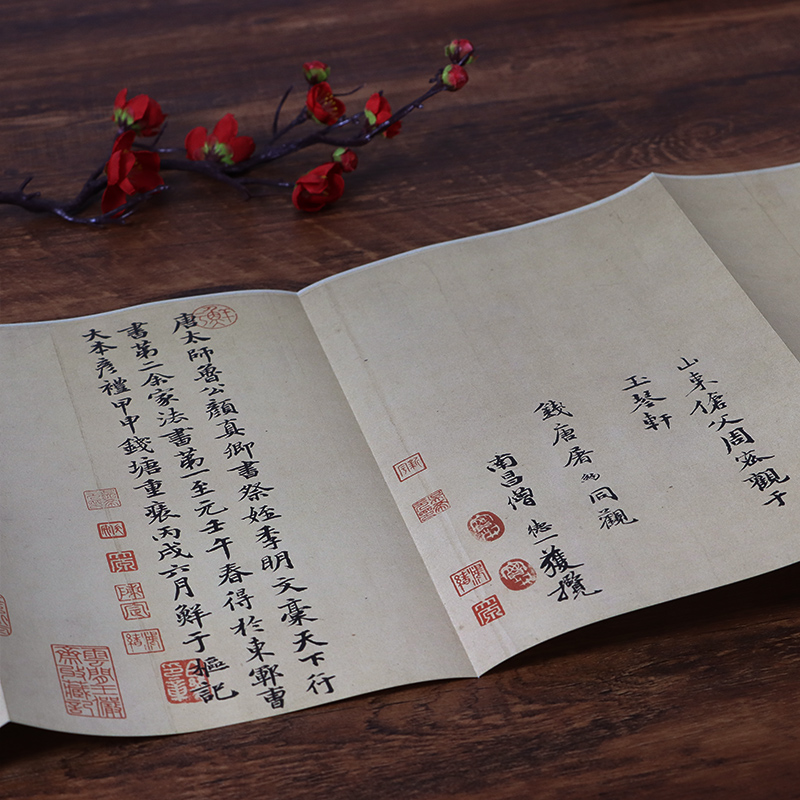 山東傖父周密觀于
玉琴軒
錢唐屠約同觀
南昌僧德一獲攬
唐太師魯公顏真卿書祭姪季明文藁天下行
書第二余家法書第一至元壬午春得於東鄆曹
大本彥禮甲申錢塘重裝丙戌六月鮮于樞記